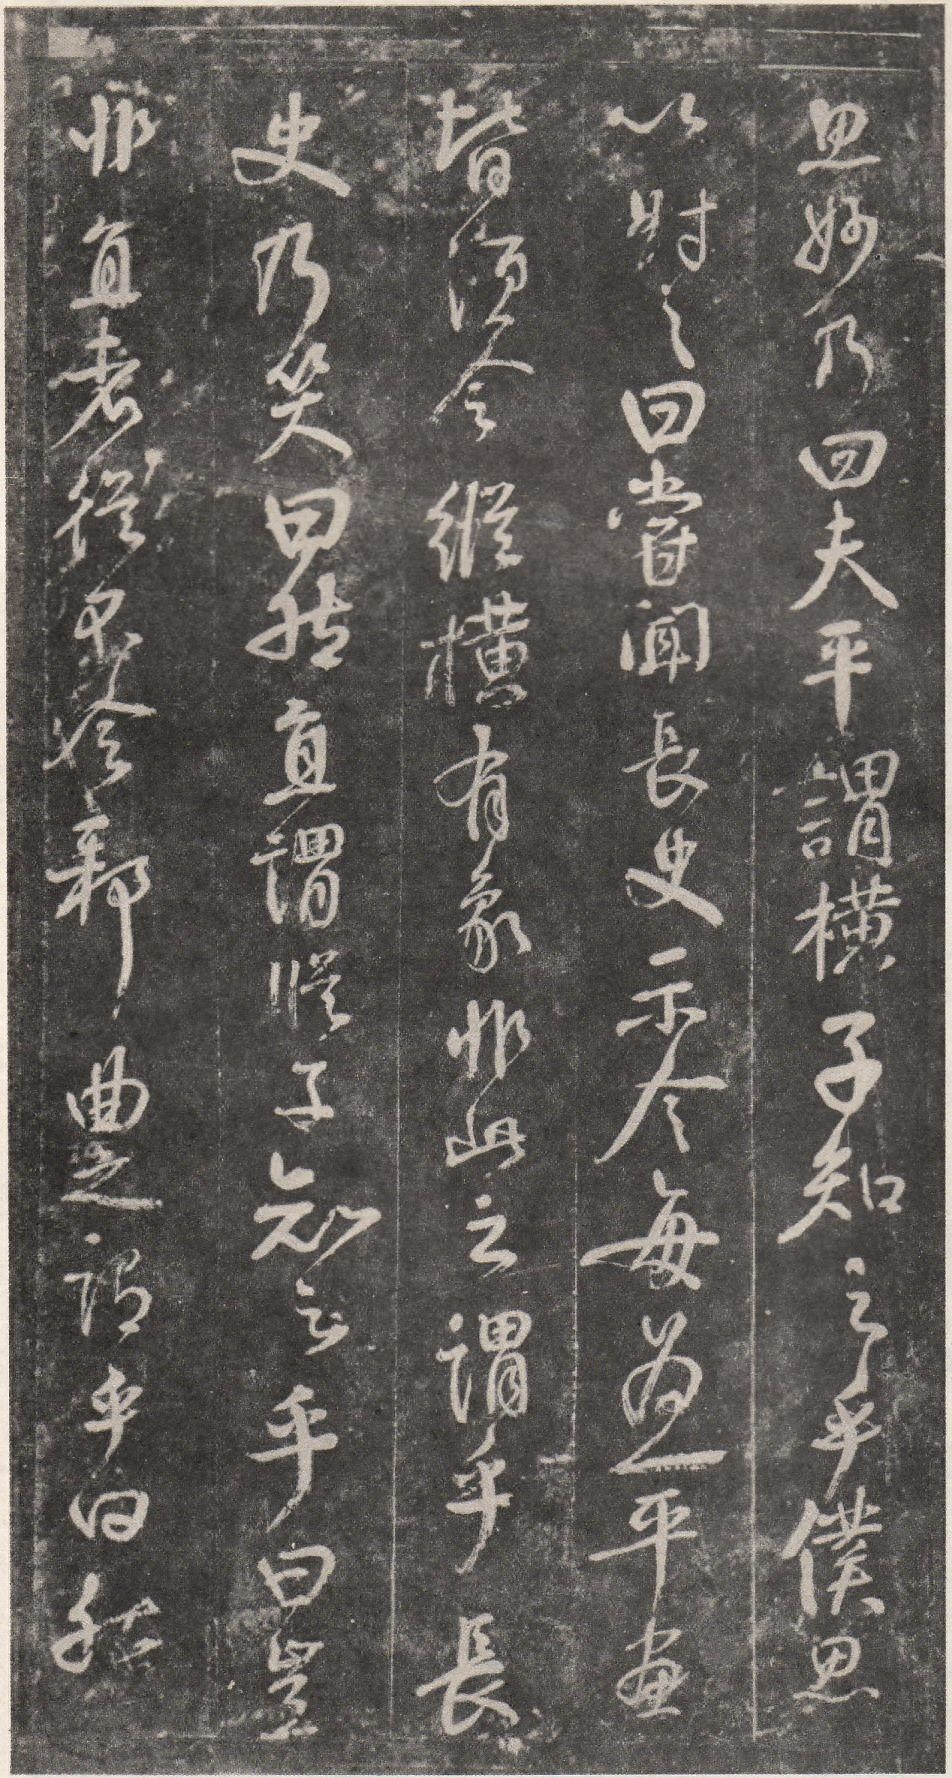 思妙乃曰夫平謂橫子知之乎僕思
以對之曰嘗聞長史示令每為一平畫
皆須令縱橫有象非此之謂乎長
史乃笑曰然直謂從子知之乎曰豈
非直者從不令邪曲之謂乎曰然